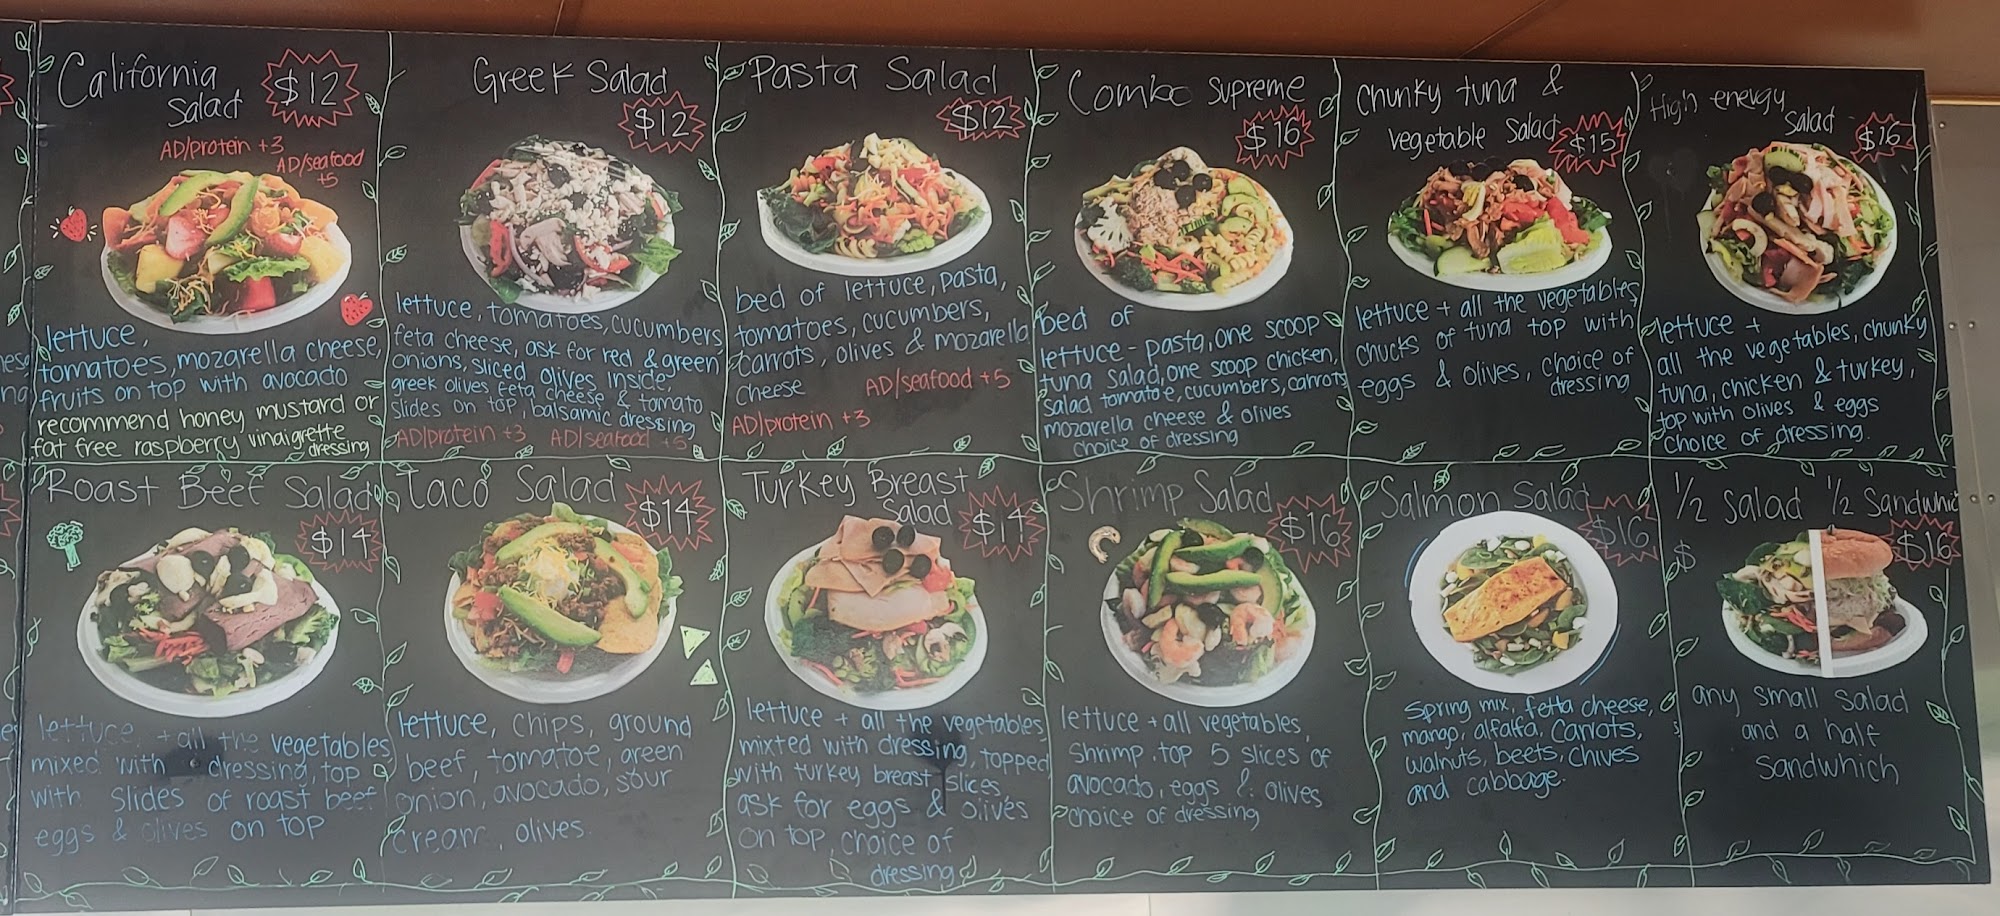 California
Salad
$12
AD/protein +3
AD/seafood
+5
lettuce,
tomatoes, mozarella cheese,
fruits on top with avocado
recommend honey mustard or
fat free raspberry vinaigrette
dressing
Greek Salad
$12
lettuce, tomatoes, cucumbers
feta cheese, ask for red & green
onions, sliced olives inside.
greek olives feta cheese & tomato
slides on top, balsamic dressing
AD/protein +3 AD/seafood +5
Pasta Salad
$12
bed of lettuce, pasta,
tomatoes, cucumbers,
carrots, olives & mozarella
cheese
AD/seafood +5
AD/protein +3
Combo Supreme
$16
bed of
lettuce - pasta, one scoop
tuna salad, one scoop chicken,
salad tomatoe, cucumbers, carrots
mozarella cheese & olives
choice of dressing
Chunky tuna &
vegetable Salad
$15
lettuce + all the vegetables
chucks of tuna top with
eggs & olives, choice of
dressing
High energy
Salad
$16
lettuce +
all the vegetables, chunky
tuna, chicken & turkey,
top with olives & eggs
choice of dressing.
Roast Beef Salad
$14
lettuce + all the vegetables
mixed with dressing, top
with slides of roast beef
eggs & olives on top
Taco Salad
$14
lettuce, chips, ground
beef, tomatoe, green
onion, avocado, sour
cream, olives.
Turkey Breast
Salad
$14
lettuce + all the vegetables
mixted with dressing, topped
with turkey breast slices
ask for eggs & olives
on top, choice of
dressing
Shrimp Salad
$16
lettuce + all vegetables,
Shrimp. top 5 slices of
avocado, eggs & olives
choice of dressing
Salmon Salad
$16
Spring mix, fetta cheese,
mango, alfalfa, carrots,
walnuts, beets, chives
and cabbage.
1/2 Salad 1/2 Sandwhic
$
$16
any small salad
and a half
sandwhich